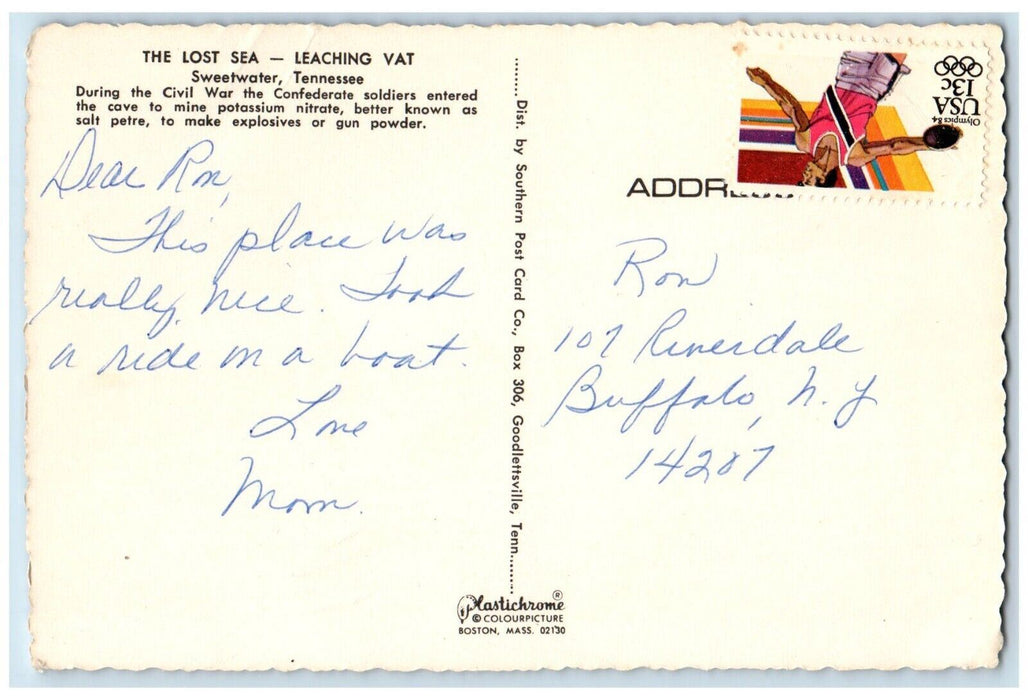 THE LOST SEA — LEACHING VAT
Sweetwater, Tennessee
During the Civil War the Confederate soldiers entered
the cave to mine potassium nitrate, better known as
salt petre, to make explosives or gun powder.
Dear Ron,
This place was
really nice. Took
a ride on a boat.
Love
Mom.
Dist. by Southern Post Card Co., Box 306, Goodlettsville, Tenn.
Plastichrome ®
© COLOURPICTURE
BOSTON, MASS. 02130
Olympics 84
USA
13c
Ron
107 Riverdale
Buffalo, N.Y
14207